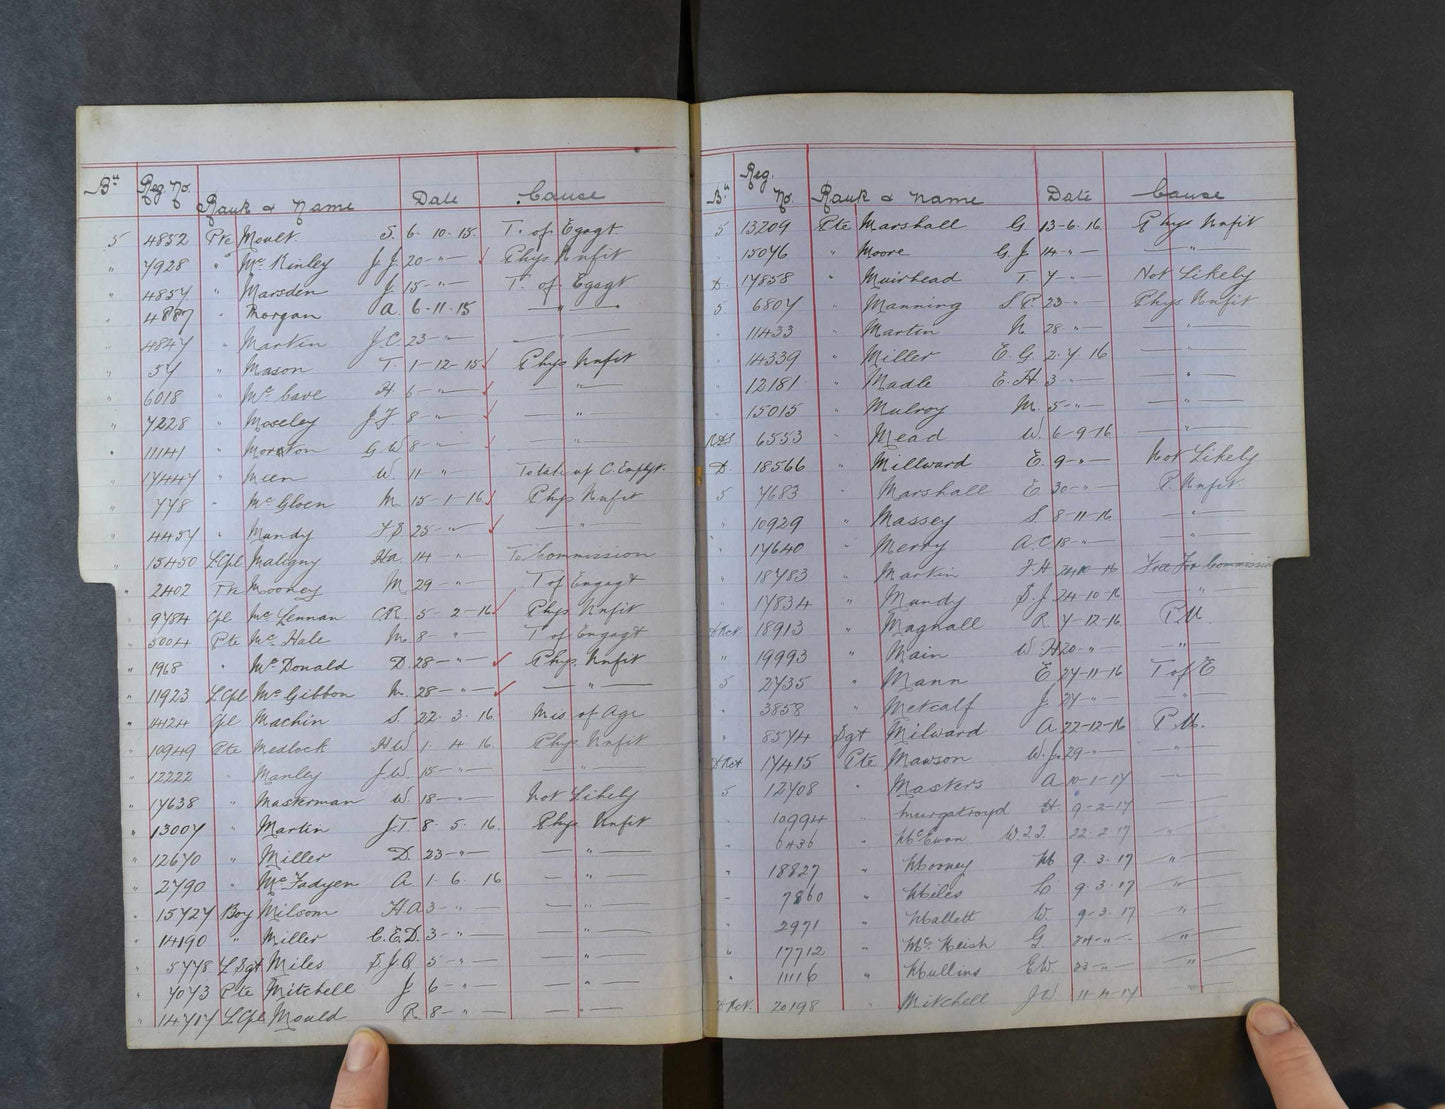 Bn Reg No. Rank & Name Date Cause
5 4852 Pte Moult S. 6-10-15 T. of Egagt.
" 7928 " Mc Kinley J.J. 20-"- Phys Unfit
" 4857 " Marsden J. 15-"- T. of Egagt
" 4887 " Morgan A. 6-11-15 — " —
" 4847 " Martin J.C. 23-"- — " —
" 57 " Mason T. 1-12-15 Phys Unfit
" 6018 " Mc Cave H. 6-"- — " —
" 7228 " Moseley J.F. 8-"- — " —
" 11141 " Moreton G.W. 8-"- — " —
" 17447 " Meen W. 11-"- To take up C. Employt.
" 778 " Mc Gloen M. 15-1-16 Phys Unfit
" 4457 " Mundy 25-"- — " —
" 15450 LCpl Maligny Ha. 14-"- To Commission
" 2402 Pte Mooney M. 29-"- T of Engagt
" 9784 Cpl Mc Lennan C.R. 5-2-16 Phys Unfit
" 5004 Pte Mc Hale M. 8-"- T of Engagt
" 1968 " Mc Donald D. 28-"- Phys. Unfit
" 11923 LCpl Mc Gibbon M. 28-"- — " —
" 14124 Cpl Machin S. 22.3.16 Mis of Age
" 10949 Pte Medlock H.W. 1.4.16 Phys Unfit
" 12222 " Manley J.W. 15-"- — " —
" 17638 " Masterman W. 18-"- Not Likely
" 13007 " Martin J.T. 8.5.16 Phys Unfit
" 12670 " Miller D. 23-"- — " —
" 2790 " Mc Fadyen A. 1.6.16 — " —
" 15727 Boy Milsom H.A. 3-"- — " —
" 14190 " Miller C.E.D. 3-"- — " —
" 5778 L Sgt Miles 5-"- — " —
" 7073 Pte Mitchell J. 6-"- — " —
" 14717 LCpl Mould R. 8-"- — " —
Bn Reg. No. Rank & Name Date Cause
5 13209 Pte Marshall G. 13-6-16 Phys Unfit
" 15076 " Moore G.J. 14-"- — " —
D. 17858 " Muirhead T. 7-"- Not Likely
5. 6807 " Manning S.P. 23-"- Phys Unfit
" 11433 " Martin N. 28-"- — " —
" 14339 " Miller E.G. 2.7.16 — " —
" 12181 " Madle E.H. 3-"- — " —
" 15015 " Mulroy M. 5-"- — " —
6553 " Mead W. 6-9-16 — " —
D. 18566 " Millward E. 9-"- Not Likely
5 7683 " Marshall E. 30-"- P. Unfit
" 10929 " Massey S. 8-11-16 — " —
" 17640 " Merry A.C. 18-"- — " —
" 18783 " Martin F.H. 24-10-16 Free For Commission
" 17834 " Mundy S.J. 24-10-16 — " —
D Ret. 18913 " Magnall R. 7-12-16 P.U.
" 19993 " Main W H 20-"- — " —
5 2735 " Mann E. 27-11-16 T of E
" 3858 " Metcalf J. 27-"- — " —
" 8574 Sgt Milward A. 22-12-16 P.U.
D Ret 17415 Pte Mawson W.J. 29-"- — " —
5 12708 " Masters A. 10-1-17 — " —
" 10994 " Murgatroyd H. 9-2-17 — " —
" 6436 " McEwan 22.2.17 — " —
" 18827 " Mooney M 9.3.17 — " —
" 7860 " Miles L 9.3.17 — " —
" 2971 " Mallett W. 9-3.17 — " —
" 17712 " Mc. Keish G. 24-"- — " —
" 11116 " Mullins EW. 23-"- — " —
D Ret. 20198 " Mitchell J W 11-4-17 — " —